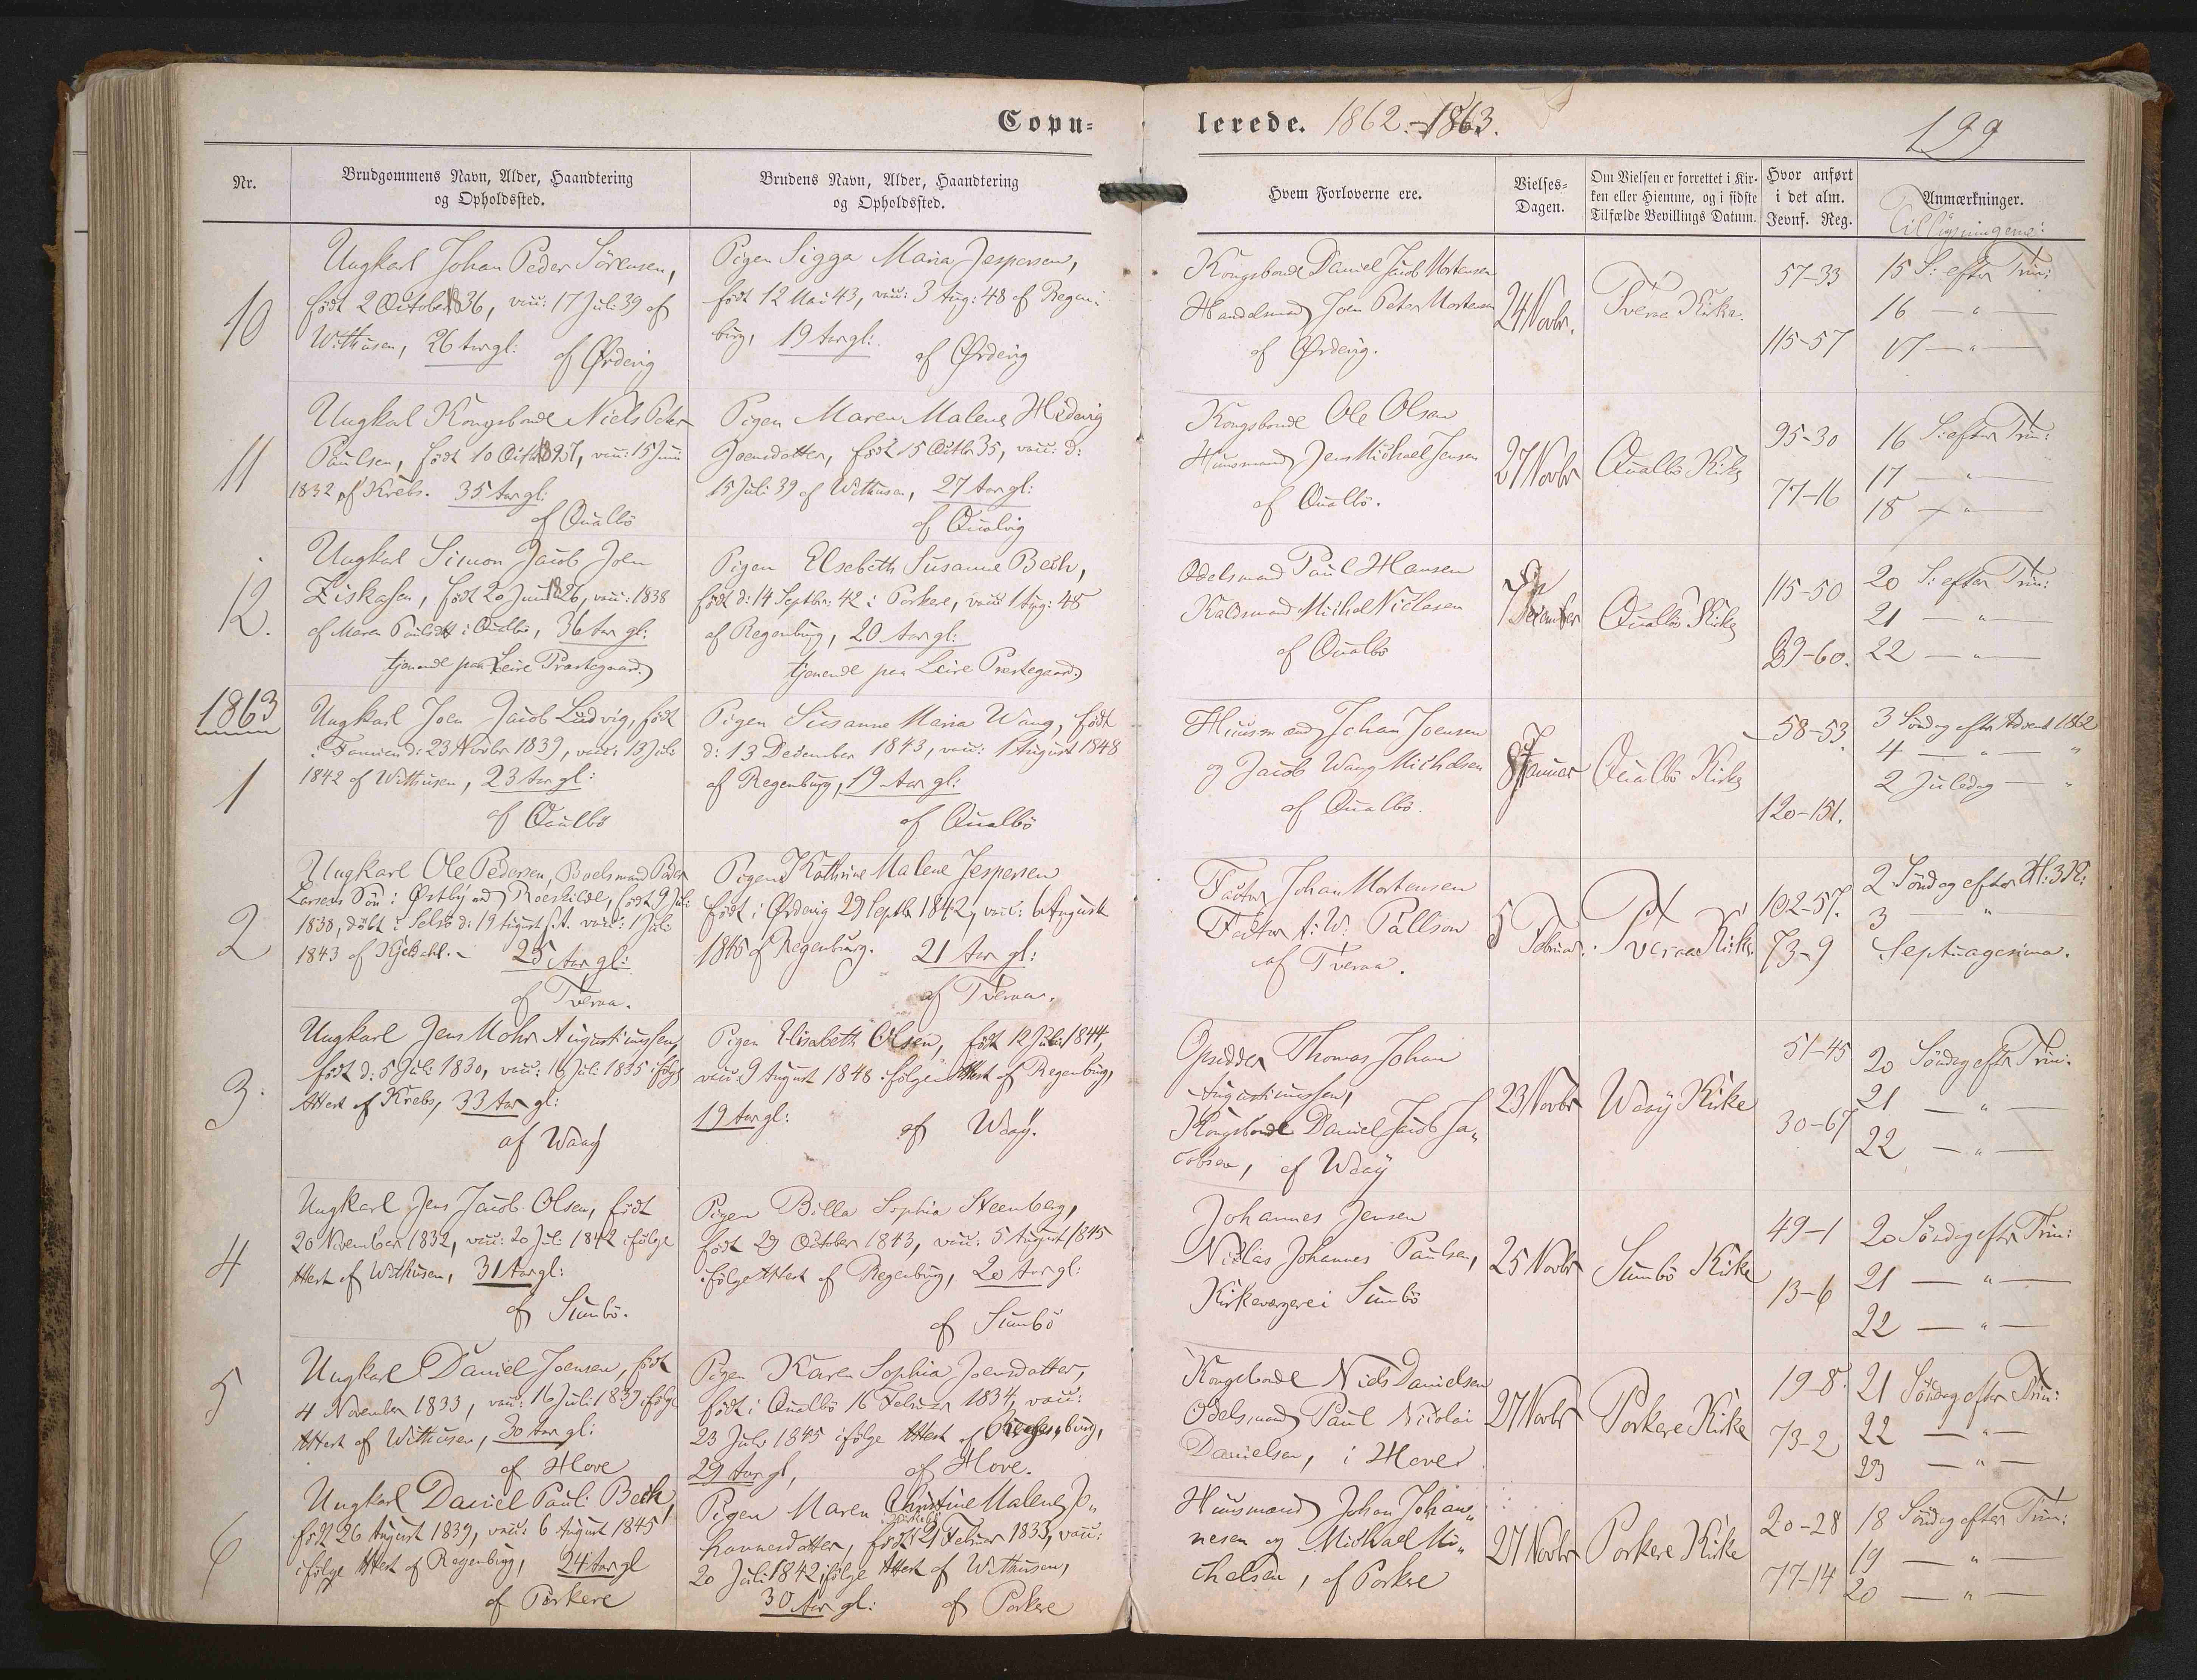 Copu-
lerede. 1862.-1863.
199
Nr.
Brudgommens Navn, Alder, Haandtering
og Opholdssted.
Brudens Navn, Alder, Haandtering
og Opholdssted.
Hvem Forloverne ere.
Vielses-
Dagen.
Om Vielsen er forrettet i Kir-
ken eller Hiemme, og i sidste
Tilfælde Bevillings Datum.
Hvor anført
i det alm.
Jevnf. Reg.
Anmærkninger.
Tillysningerne:
10
Ungkarl Johan Peder Sörensen,
født 2 October 1836, vacc: 17 Juli 39 af
Withusen, 26 Aar gl:
af Ørdevig
Pigen Sigga Maria Jespersen,
født 12 Mai 43, vacc: 3 Aug: 48 af Regen-
burg, 19 Aar gl:
af Ørdevig
Kongsbonde Daniel Jacob Mortensen
Handelsmand Joen Peter Mortensen
af Ørdevig.
24 Novbr.
Tveraa Kirke.
57-33
115-57
15 S: efter Trin:
16 — " —
17 — " —
11
Ungkarl Kongsbonde Niels Peter
Paulsen, født 10 Octbr 1827, vacc: 15 Juni
1832 af Krebs. 35 Aar gl:
af Qualbö
Pigen Maren Malene Hedevig
Joensdatter, født 15 Octbr 35, vacc: d:
15 Juli 39 af Withusen, 27 Aar gl:
af Qualvig
Kongsbonde Ole Olsen
Huusmand Jens Michael Jensen
af Qualbö.
27 Novbr
Qualbö Kirke
95-30
77-16
16 S: efter Trin:
17 — " —
18 — " —
12.
Ungkarl Simon Jacob Joen
Ziskasen, født 20 Juni 1826, vacc: 1838
af Maren Paulsdtt i Qualbö, 36 Aar gl:
tjenende paa Leire Præstegaard.
Pigen Elsebeth Susanne Bech,
født d: 14 Septbr: 42 i Porkere, vacc 1 Aug: 48
af Regenburg, 20 Aar gl:
tjenende paa Leire Præstegaard.
Odelsmand Paul Hansen
Kaldsmand Michel Niclasen
af Qualbö
7 December
Qualbö Kirke
115-50
29-60.
20 S: efter Trin:
21 — " —
22 — " —
1863
1
Ungkarl Joen Jacob Ludvig, født
i Famien d: 23 Novbr 1839, vacc: 13 Juli
1842 af Withusen, 23 Aar gl:
af Qualbö
Pigen Susanne Maria Wang, født
d: 13 December 1843, vacc: 1 August 1848
af Regenburg, 19 Aar gl:
af Qualbö
Huusmand Johan Joensen
og Jacob Wang Michelsen
af Qualbö.
Januar
Qualbö Kirke
58-53.
120-151.
3 Söndag efter Advent 1862
4 — " — "
2 Juledag — "
2
Ungkarl Ole Pedersen, Boelsmand Peder
Larsens Sön i Østby ved Roeskilde, født 9 Juli
1838, döbt i Selsö d: 19 August s.A. vacc: 1 Juli
1843 af Kjeldahl. - 25 Aar gl:
af Tveraa.
Pigen Kathrine Malene Jespersen
født i Ørdevig 29 Septbr 1842, vacc: 6 August
1845 af Regenburg. 21 Aar gl:
af Tveraa.
Factor Johan Mortensen
Factor f: W: Pallson
af Tveraa.
5 Februar.
Tveraa Kirke.
102-57.
73-9
2 Söndag efter H: 3 K:
3 — " —
Septuagesima.
3.
Ungkarl Jens Mohr Augustinussen,
født d: 5 Juli 1830, vacc: 16 Juli 1835 ifölge
Attest af Krebs, 33 Aar gl:
af Waag
Pigen Elisabeth Olsen, født 12 Juli 1844,
vacc: 9 August 1848 ifölge Attest af Regenburg,
19 Aar gl:
af Waaÿ.
Opsidder Thomas Johan
Augustinussen,
Kongsbonde Daniel Jacob Ja-
cobsen, af Waaÿ
23 Novbr
Waaÿ Kirke
51-45
30-67
20 Söndag efter Trin.
21 — " —
22 — " —
4
Ungkarl Jens Jacob Olsen, født
20 November 1832, vacc: 20 Juli 1842 ifölge
Attest af Withusen, 31 Aar gl:
af Sumbö.
Pigen Billa Sophia Steenberg,
født 29 October 1843, vacc: 5 August 1845
ifölge Attest af Regenburg, 20 Aar gl:
af Sumbö
Johannes Jensen
Niclas Johannes Paulsen,
Kirkeværgere i Sumbö
25 Novbr
Sumbö Kirke
49-1
13-6
20 Söndag efter Trin:
21 — " —
22 — " —
5
Ungkarl Daniel Joensen, født
4 November 1833, vacc: 16 Juli 1839 ifölge
Attest af Withusen, 30 Aar gl:
af Hove
Pigen Karen Sophia Joensdatter,
født i Qualbö 16 Februar 1834, vacc:
23 Juli 1845 ifölge Attest af Regenburg,
29 Aar gl, af Hove.
Kongsbonde Niels Danielsen
Odelsmand Paul Nicolai
Danielsen, i Hove
27 Novbr
Porkere Kirke
19-8.
73-2
21 Söndag efter Trin:
22 — " —
23 — " —
6
Ungkarl Daniel Pauli Bech,
født 26 August 1839, vacc: 6 August 1845
ifölge Attest af Regenburg, 24 Aar gl
af Porkere
Pigen Maren Christine Malene Jo-
hannesdatter, født 21 Februar 1833, vacc:
20 Juli 1842 ifölge Attest af Withusen,
30 Aar gl: af Porkere
Huusmand Johan Johan-
nesen og Michael Mi-
chelsen, af Porkere
27 Novbr
Porkere Kirke
20-28
77-14
18 Söndag efter Trin:
19 — " —
20 — " —